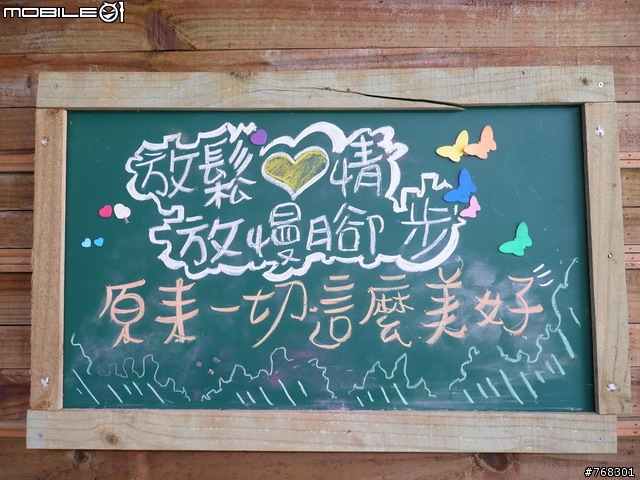 MOBILE01
放鬆情
放慢腳步
原來一切這麼美好
#768301